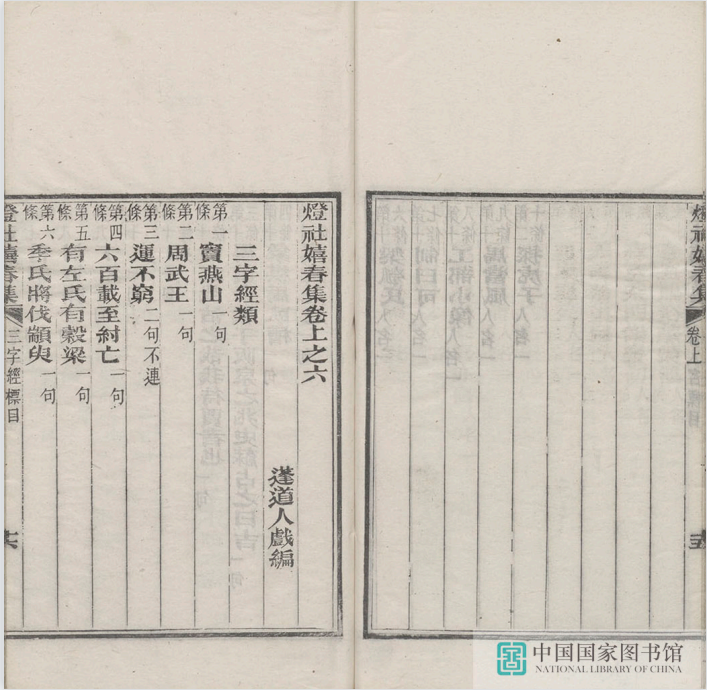 燈社嬉春集
卷上
燈社嬉春集卷上之六
蓬道人戲編
三字經類
第一條 竇燕山 一句
第二條 周武王 一句
第三條 運不窮 二句不連
第四條 六百載至紂亡 一句
第五條 有左氏有穀梁 一句
第六條 季氏將伐顓臾 一句
燈社嬉春集 三字經標目
中国国家图书馆
NATIONAL LIBRARY OF CHINA